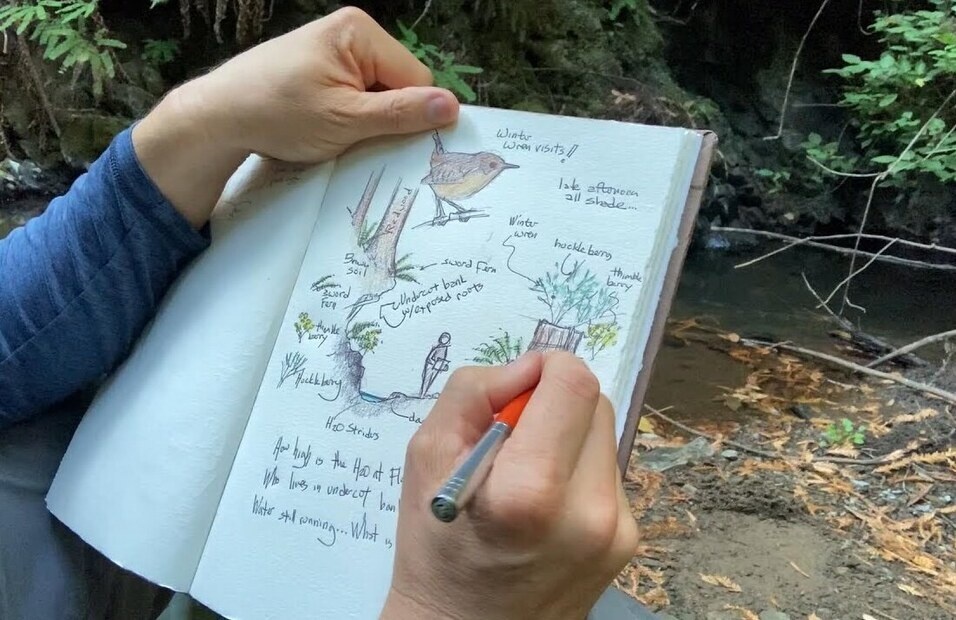 Winter
Wren visits!!
late afternoon
all shade...
Redwood
Winter
wren
huckleberry
thimble
berry
soil
sword Fern
sword
Fern
Undercut bank
w/exposed roots
thimble
berry
Huckleberry
H2O Strides
How high is the H2O at
Who lives in undercut
Water still running... What is